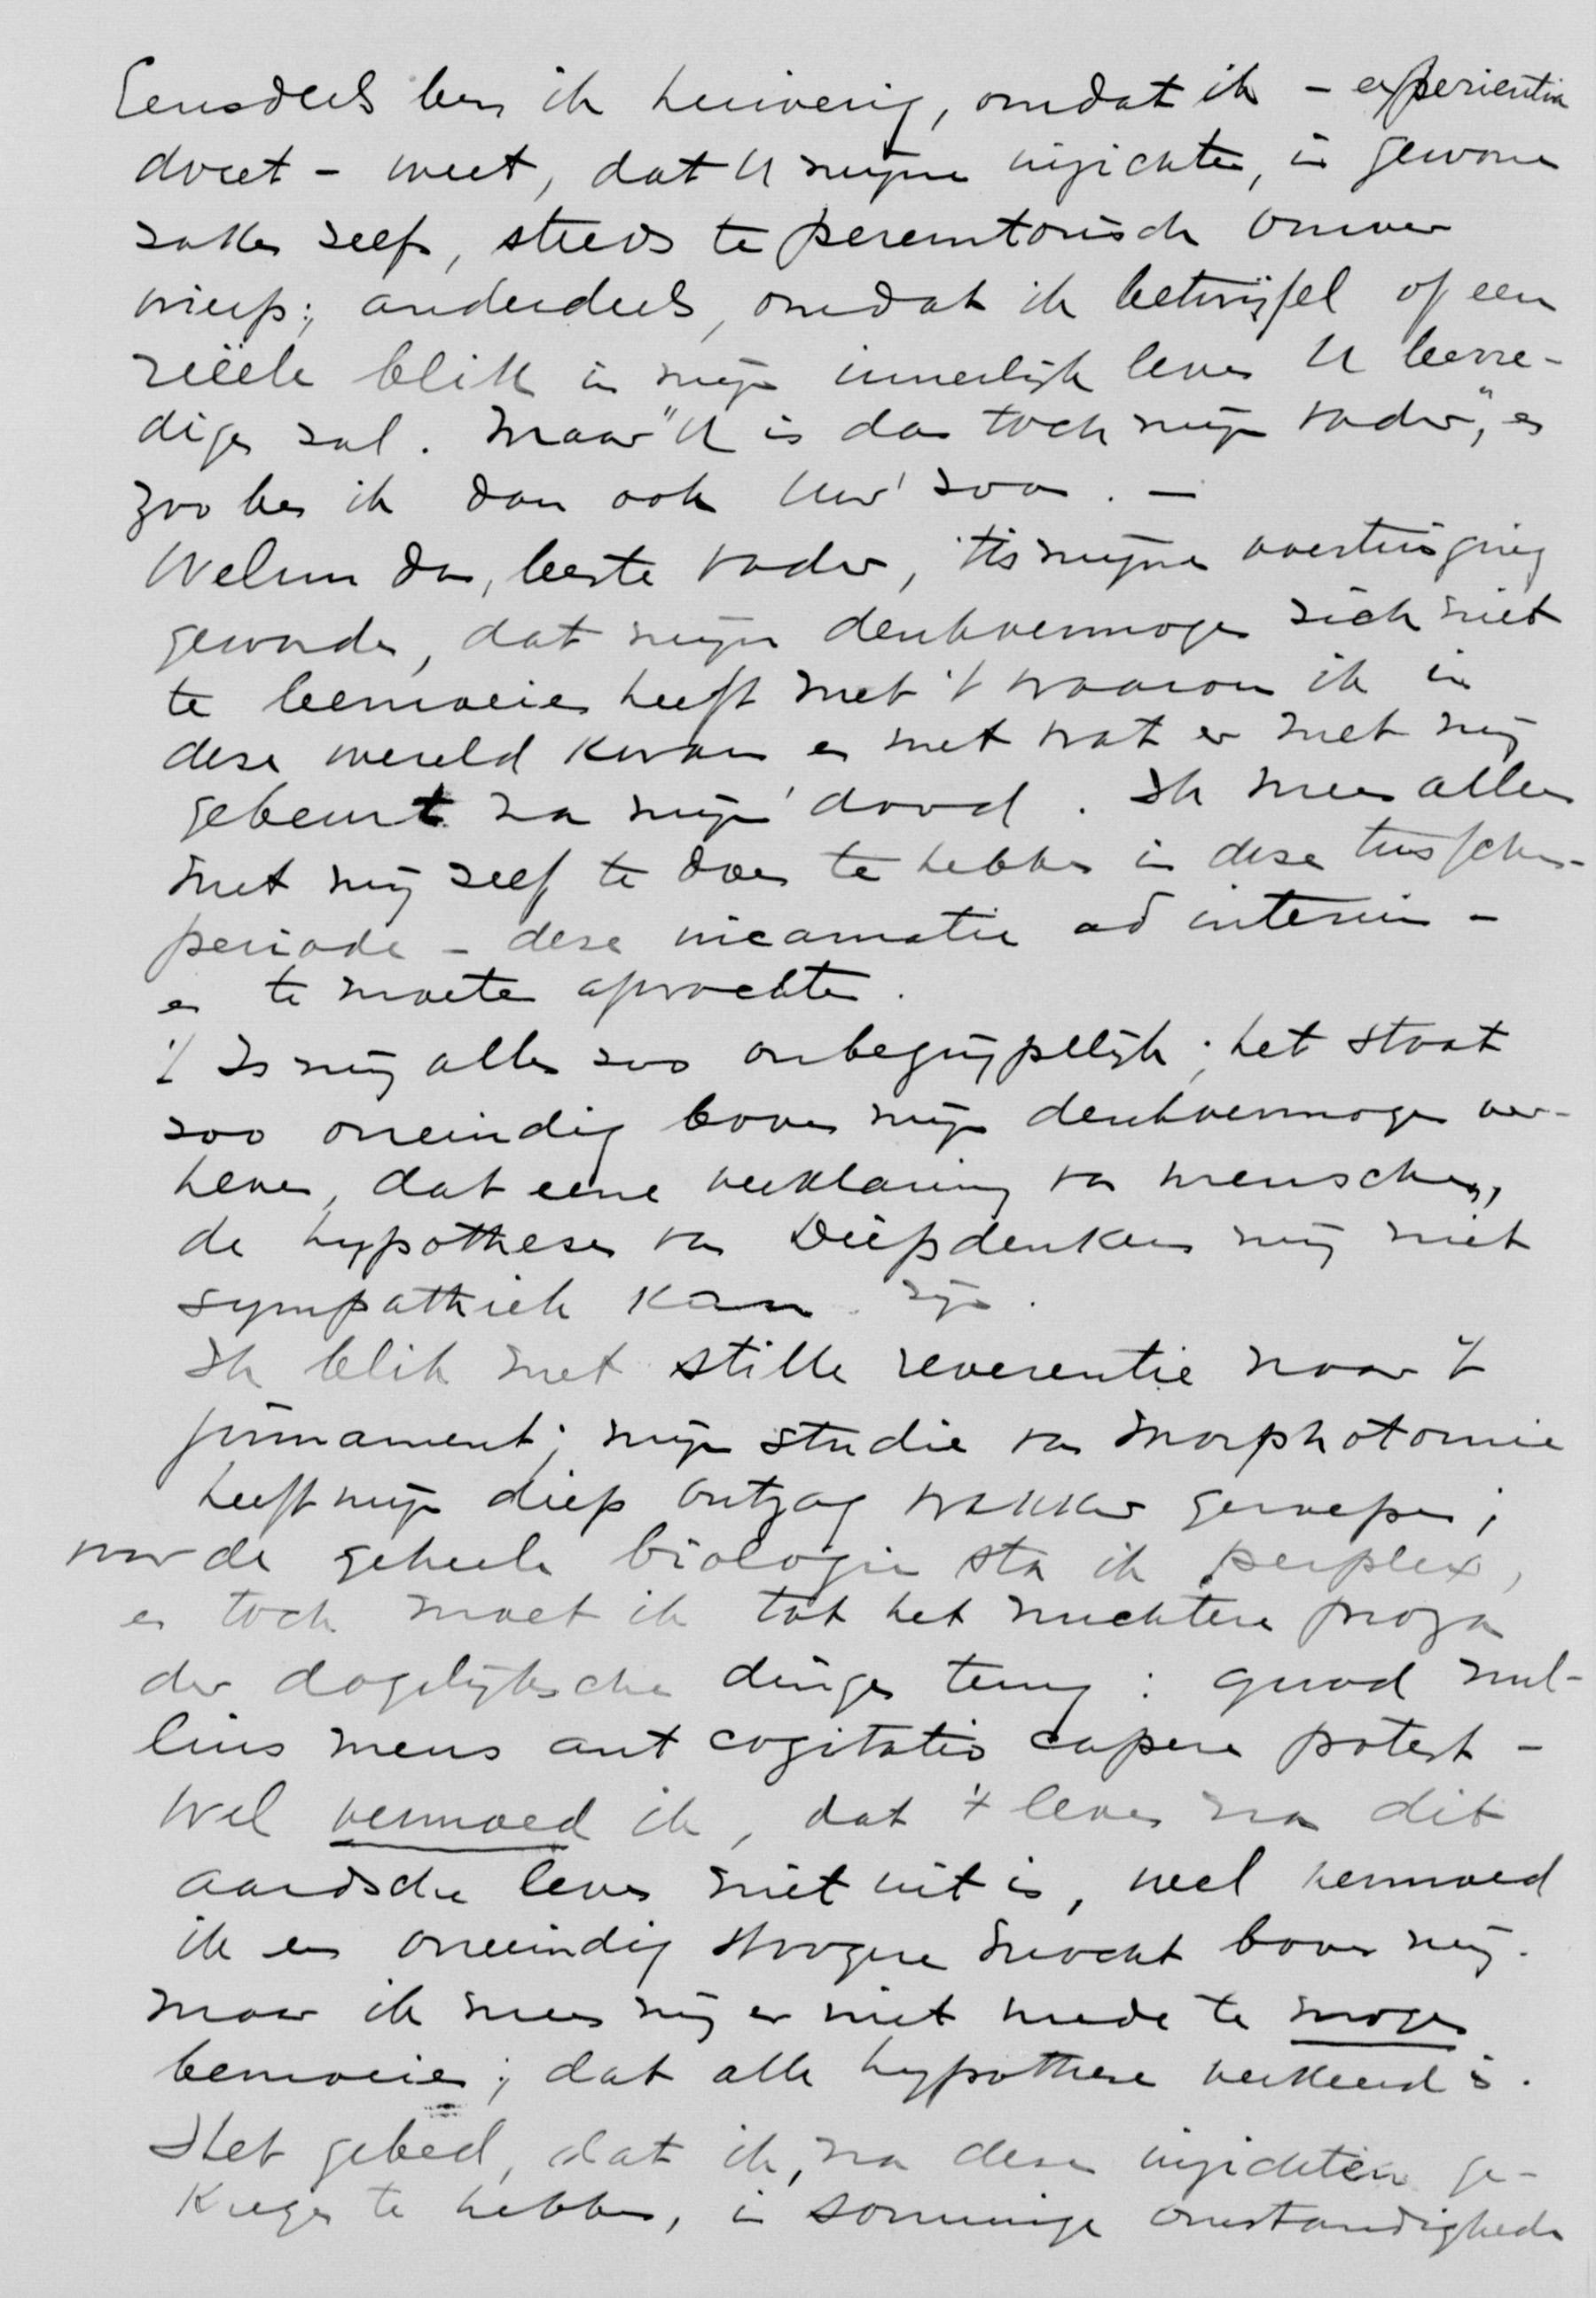 Eensdeels ben ik huiverig, omdat ik - experientia
docet - weet, dat U mijne inzichten, in gewone
zaken zelfs, steeds te peremtorisch omver
wierp; anderdeels, omdat ik betwijfel of een
reëele blik in mijn innerlijk leven U bevre-
digen zal. Maar "U is dan toch mijn vader", en
zoo ben ik dan ook Uw' zoon. -
Welnu dan, beste vader, 'tis mijne overtuiging
geworden, dat mijn denkvermogen zich niet
te bemoeien heeft met 't waarom ik in
deze wereld kwam en met wat er met mij
gebeurt na mijn' dood. Ik meen alleen
met mij zelf te doen te hebben in deze tusschen-
periode - deze incarnatie ad interim -
en te moeten afwachten.
't Is mij alles zoo onbegrijpelijk; het staat
zoo oneindig boven mijn denkvermogen ver-
heven, dat eene verklaring van menschen,
de hypothesen van Diepdenkers mij niet
sympathiek kan zijn.
Ik blik met stille reverentie naar 't
firmament; mijn studie van morphotomie
heeft mijn diep ontzag wakker geroepen;
voor de geheele biologie sta ik perplex,
en toch moet ik tot het nuchtere proza
der dagelijksche dingen terug: quod nul-
lius mens aut cogitatio capere potest -
Wel vermoed ik, dat 't leven na dit
aardsche leven niet uit is, wel vermoed
ik een oneindig Hoogere macht boven mij.
maar ik meen mij er niet mede te mogen
bemoeien; dat alle hypothese verkeerd is.
Het gebed, dat ik, na deze inzichten ge-
kregen te hebben, in sommige omstandigheden